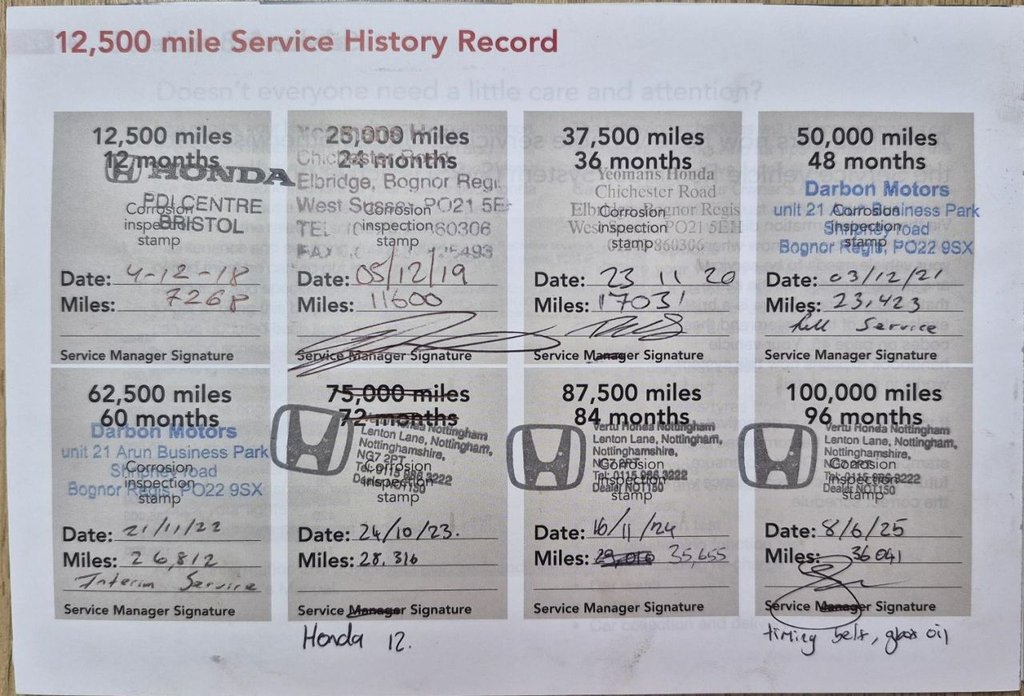 12,500 mile Service History Record
Doesn't everyone need a little care and attention?
12,500 miles
12 months
HONDA
PDI CENTRE
BRISTOL
Corrosion
inspection
stamp
Date: 4-12-18
Miles: 7268
Service Manager Signature
25,000 miles
24 months
Yeomans Ho
Chichester Road
Elbridge, Bognor Regi
West Susse PO21 5E
TEL 60306
FAX 25493
Corrosion
inspection
stamp
Date: 05/12/19
Miles: 11600
Service Manager Signature
37,500 miles
36 months
Yeomans Honda
Chichester Road
Elbridge, Bognor Regis
West PO21 5EH
860306
Corrosion
inspection
stamp
Date: 23 11 20
Miles: 17031
Service Manager Signature
50,000 miles
48 months
Darbon Motors
unit 21 Arun Business Park
Shripney road
Bognor Regis, PO22 9SX
Corrosion
inspection
stamp
Date: 03/12/21
Miles: 23,423
full Service
Service Manager Signature
62,500 miles
60 months
Darbon Motors
unit 21 Arun Business Park
Shripney road
Bognor Regis, PO22 9SX
Corrosion
inspection
stamp
Date: 21/11/22
Miles: 26,812
Interim Service
Service Manager Signature
75,000 miles
72 months
Vertu Honda Nottingham
Lenton Lane, Nottingham,
Nottinghamshire,
NG7 2PT
Tel: 0115 986 3222
Dealer NOT150
Corrosion
inspection
stamp
Date: 24/10/23.
Miles: 28,316
Service Manager Signature
Honda 12.
87,500 miles
84 months
Vertu Honda Nottingham
Lenton Lane, Nottingham,
Nottinghamshire,
NG7 2PT
Tel: 0115 986 3222
Dealer NOT150
Corrosion
inspection
stamp
Date: 16/11/24
Miles: 35,655
Service Manager Signature
100,000 miles
96 months
Vertu Honda Nottingham
Lenton Lane, Nottingham,
Nottinghamshire,
NG7 2PT
Tel: 0115 986 3222
Dealer NOT150
Corrosion
inspection
stamp
Date: 8/6/25
Miles: 36041
Service Manager Signature
timing belt, gbox oil